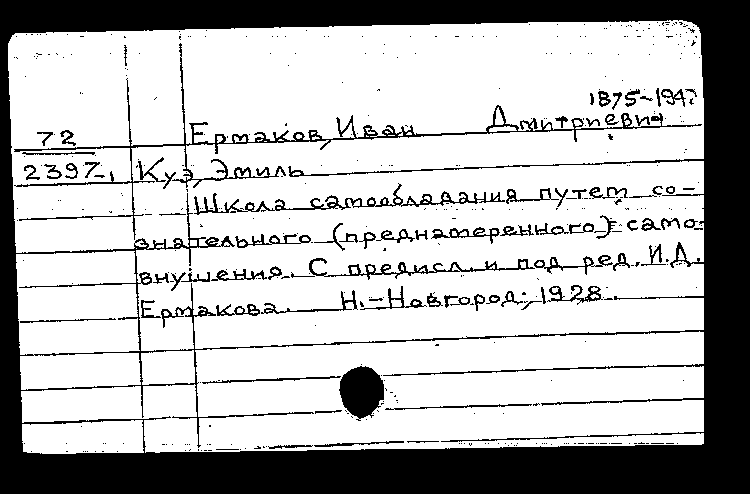 1875-194?
72 Ермаков, Иван Дмитриевич
2397. Куэ, Эмиль
Школа самообладания путем со-
знательного (преднамеренного) само-
внушения. С предисл. и под ред. И.Д.
Ермакова. Н.-Новгород, 1928.